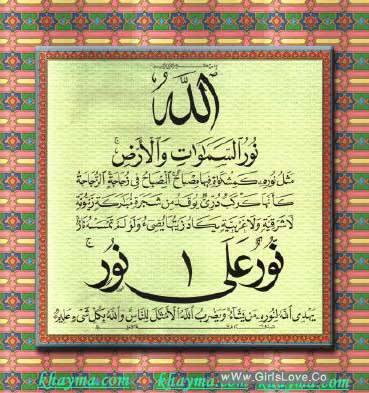 الله
نُورُ السَّمَٰوَاتِ وَالْأَرْضِ
مَثَلُ نُورِهِ كَمِشْكَاةٍ فِيهَا مِصْبَاحٌ الْمِصْبَاحُ فِي زُجَاجَةٍ الزُّجَاجَةُ
كَأَنَّهَا كَوْكَبٌ دُرِّيٌّ يُوقَدُ مِن شَجَرَةٍ مُّبَٰرَكَةٍ زَيْتُونَةٍ
لَا شَرْقِيَّةٍ وَلَا غَرْبِيَّةٍ يَكَادُ زَيْتُهَا يُضِيءُ وَلَوْ لَمْ تَمْسَسْهُ نَارٌ
نُورٌ عَلَى نُورٍ
يَهْدِى اللهُ لِنُورِهِ مَن يَشَاءُ وَيَضْرِبُ اللهُ الْأَمْثَٰلَ لِلنَّاسِ وَاللهُ بِكُلِّ شَىْءٍ عَلِيمٌ
khayma.com khayma.com khayma.com
www.GirlsLove.Co